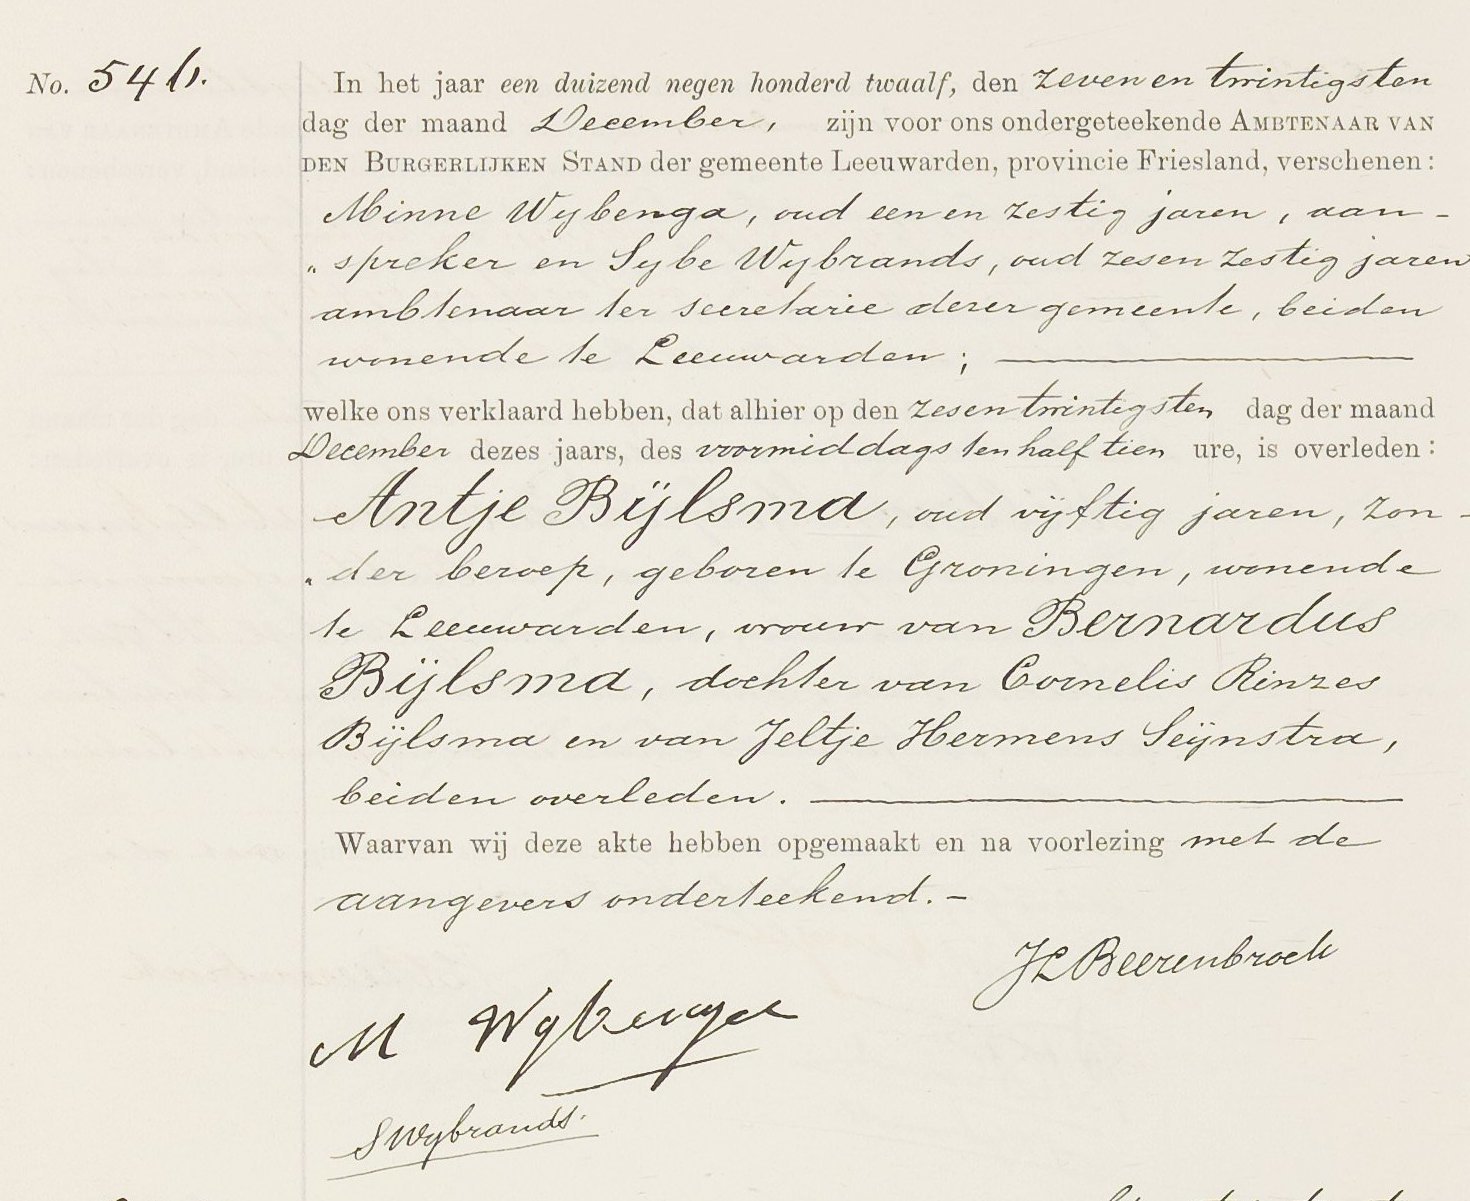 No. 546.
In het jaar een duizend negen honderd twaalf, den zeven en twintigsten
dag der maand December, zijn voor ons ondergeteekende AMBTENAAR VAN
DEN BURGERLIJKEN STAND der gemeente Leeuwarden, provincie Friesland, verschenen:
Minne Wybenga, oud een en zestig jaren, aan-
„spreker en Sybe Wybrands, oud zesen zestig jaren
ambtenaar ter secretarie dezer gemeente, beiden
wonende te Leeuwarden;
welke ons verklaard hebben, dat alhier op den zesen twintigsten dag der maand
December dezes jaars, des voormiddags ten half tien ure, is overleden:
Antje Bijlsma, oud vijftig jaren, zon-
„der beroep, geboren te Groningen, wonende
te Leeuwarden, vrouw van Bernardus
Bijlsma, dochter van Cornelis Rinzes
Bijlsma en van Jeltje Hermens Seijnstra,
beiden overleden.
Waarvan wij deze akte hebben opgemaakt en na voorlezing met de
aangevers onderteekend.-
JL Beerenbrock
M Wybenga
S Wybrands.